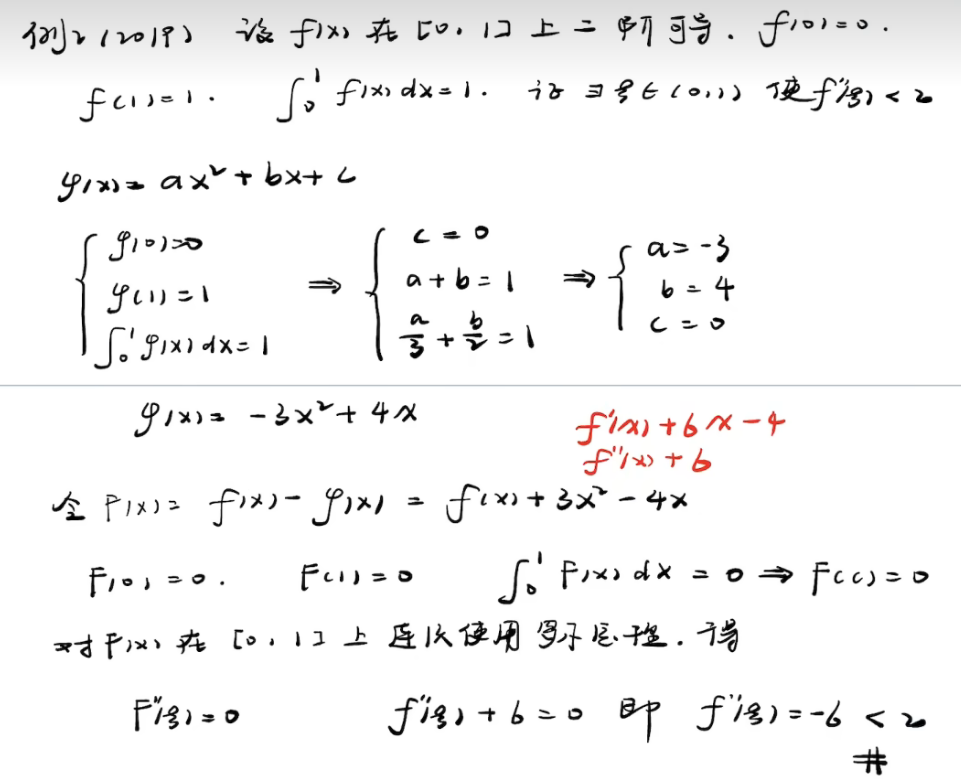 例2(2019) 设 f(x) 在 [0,1] 上二阶可导. f(0)=0.
f(1)=1. ∫₀¹ f(x)dx=1. 证 ∃ξ∈(0,1) 使 f''(ξ)<2
φ(x)= ax²+bx+c
{ φ(0)=0 ⇒ { c=0 ⇒ { a=-3
φ(1)=1 a+b=1 b=4
∫₀¹ φ(x)dx=1 a/3+b/2=1 c=0
φ(x)= -3x²+4x f'(x)+6x-4
f''(x)+6
令 F(x)= f(x)-φ(x) = f(x)+3x²-4x
F(0)=0. F(1)=0 ∫₀¹ F(x)dx=0 ⇒ F(c)=0
对 F(x) 在 [0,1] 上连次使用罗尔定理.得
F''(ξ)=0 f''(ξ)+6=0 即 f''(ξ)=-6<2
#